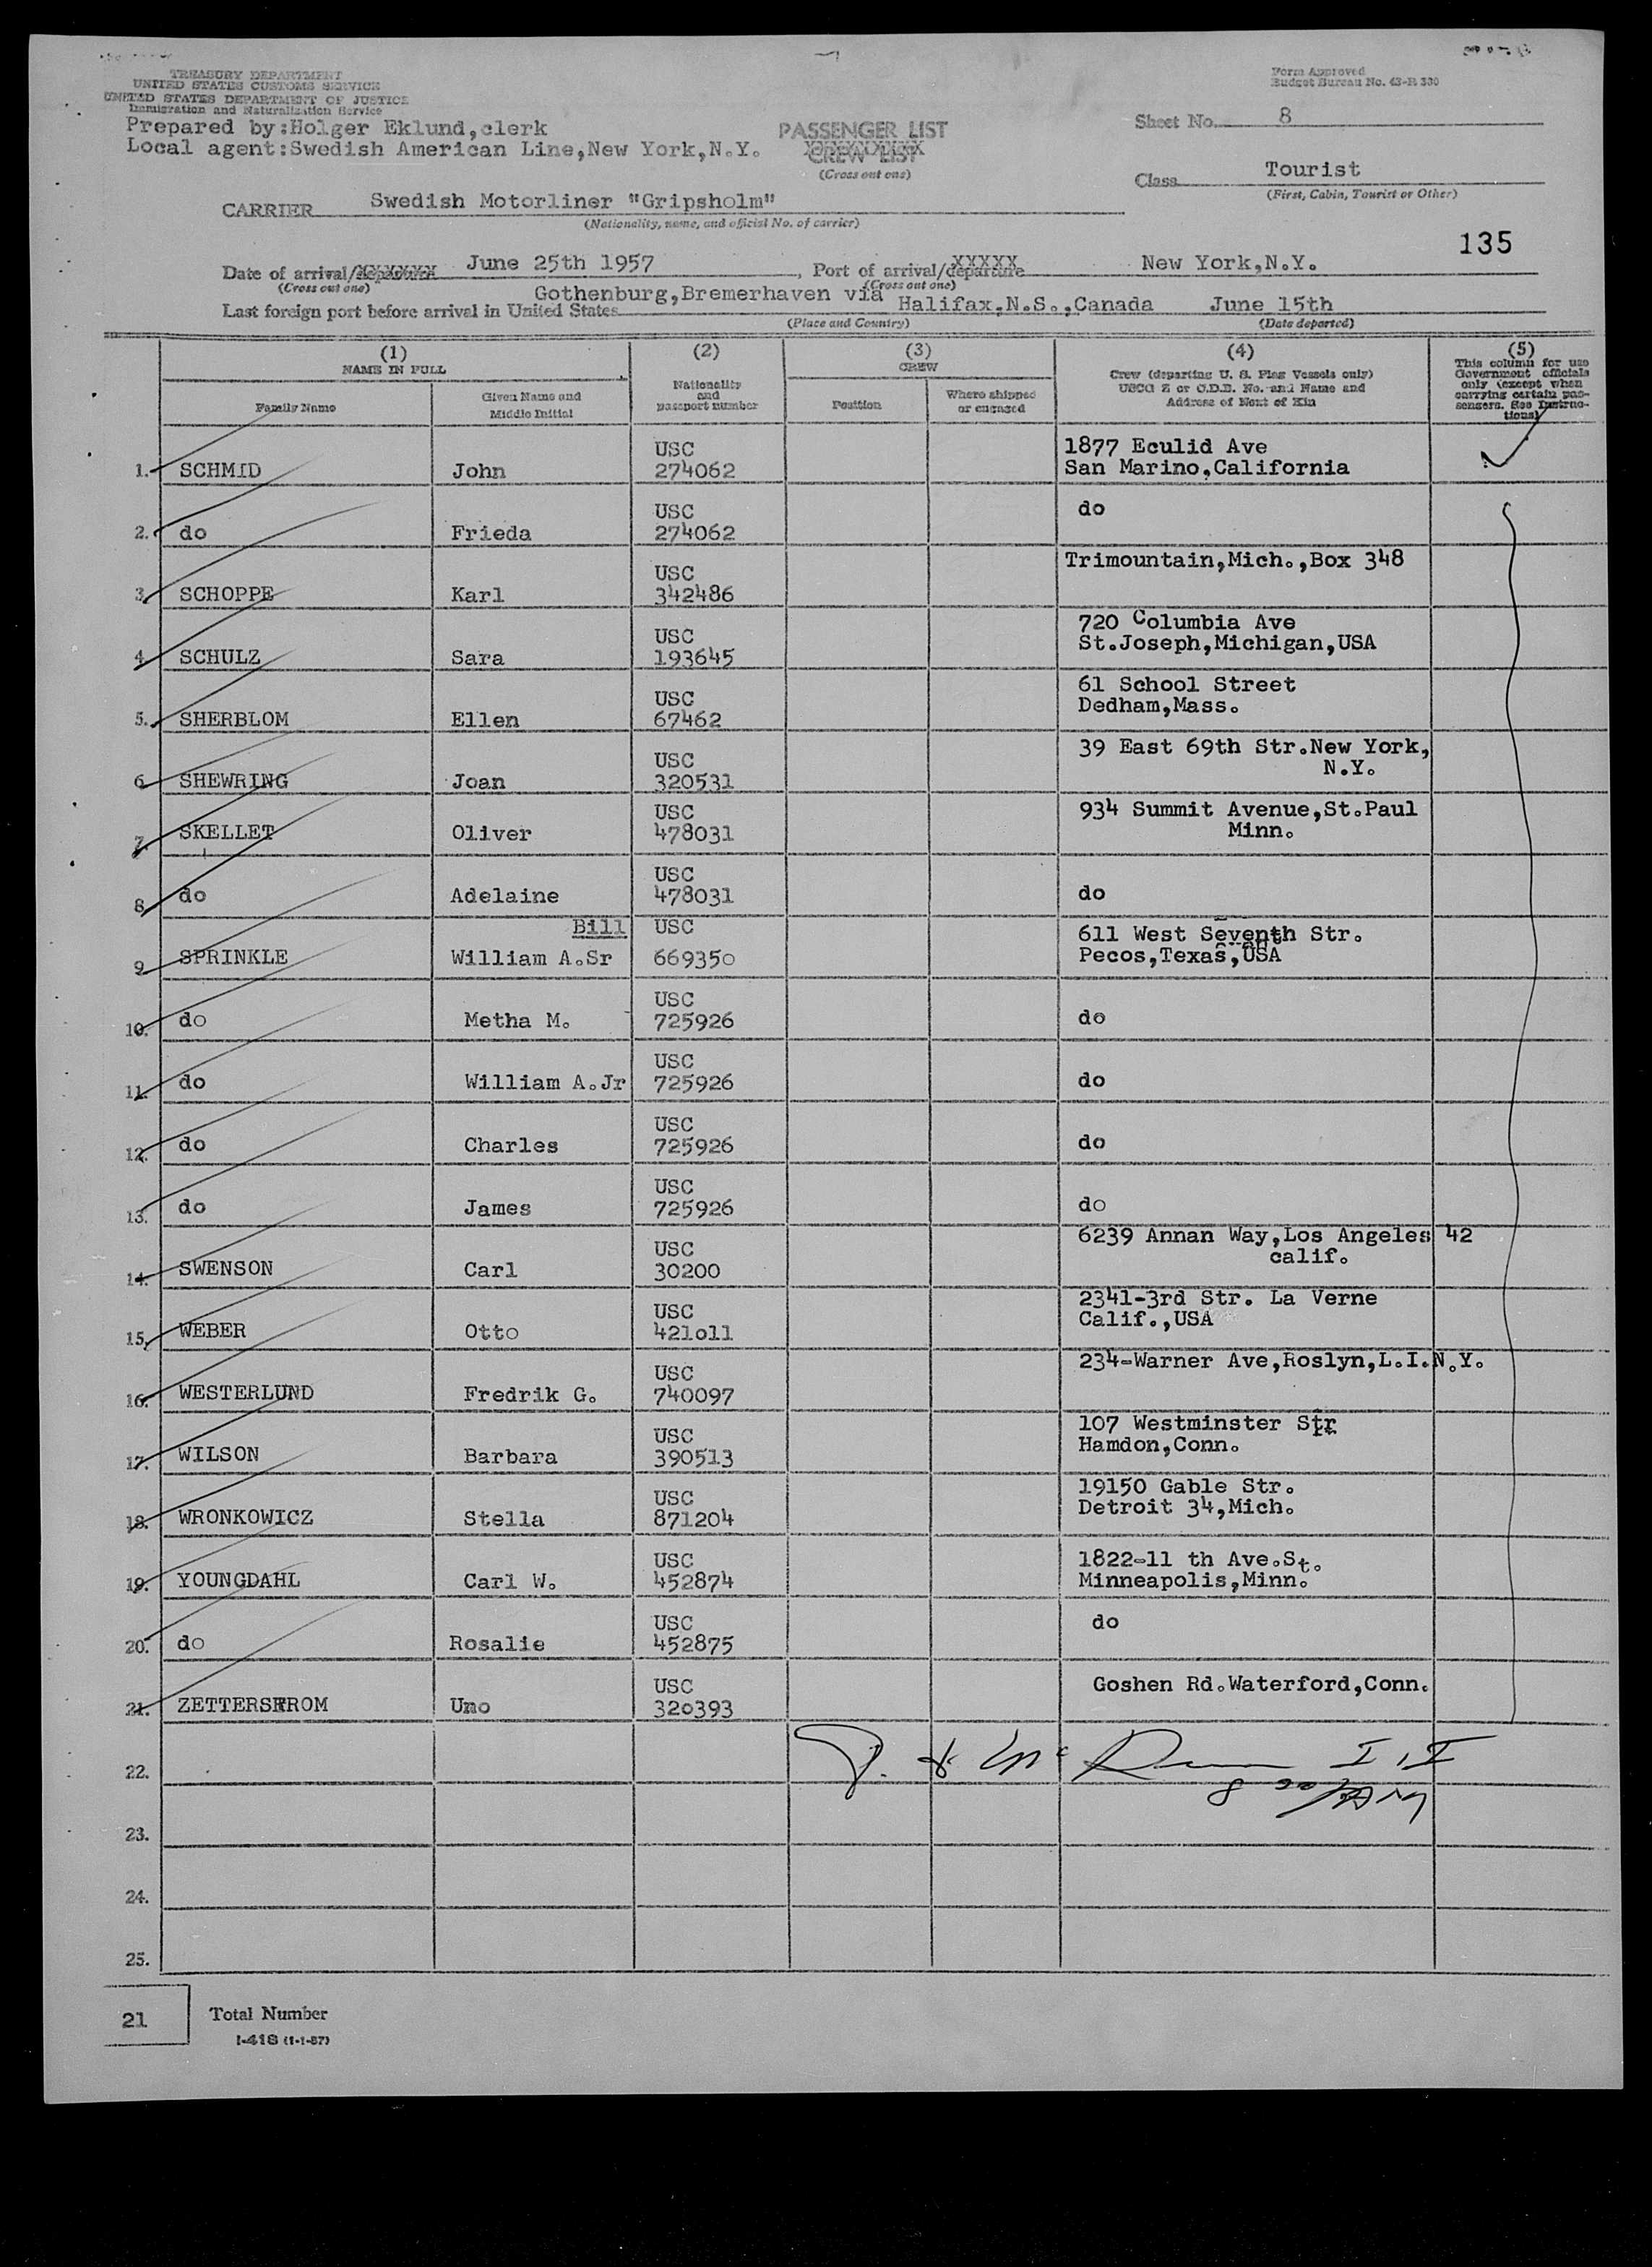 TREASURY DEPARTMENT
UNITED STATES CUSTOMS SERVICE
UNITED STATES DEPARTMENT OF JUSTICE
Immigration and Naturalization Service
Form Approved
Budget Bureau No. 43-R 330
Prepared by:Holger Eklund,clerk
Local agent:Swedish American Line,New York,N.Y.
PASSENGER LIST
CREW LIST
(Cross out one)
Sheet No. 8
Class Tourist
(First, Cabin, Tourist or Other)
CARRIER Swedish Motorliner "Gripsholm"
(Nationality, name, and official No. of carrier)
135
Date of arrival/departure June 25th 1957, Port of arrival/departure New York,N.Y.
(Cross out one) (Cross out one)
Gothenburg,Bremerhaven via
Last foreign port before arrival in United States Halifax,N.S.,Canada June 15th
(Place and Country) (Date departed)
(1) NAME IN FULL
Family Name
Given Name and Middle Initial
(2) Nationality and passport number
(3) CREW
Position
Where shipped or engaged
(4) Crew (departing U. S. Flag Vessels only) USCG Z or C.D.B. No. and Name and Address of Next of Kin
(5) This column for use Government officials only (except when carrying certain passengers. See Instructions)
1. SCHMID John USC 274062 1877 Eculid Ave San Marino,California
2. do Frieda USC 274062 do
3. SCHOPPE Karl USC 342486 Trimountain,Mich.,Box 348
4. SCHULZ Sara USC 193645 720 Columbia Ave St.Joseph,Michigan,USA
5. SHERBLOM Ellen USC 67462 61 School Street Dedham,Mass.
6. SHEWRING Joan USC 320531 39 East 69th Str.New York, N.Y.
7. SKELLET Oliver USC 478031 934 Summit Avenue,St.Paul Minn.
8. do Adelaine USC 478031 do
9. SPRINKLE Bill William A.Sr USC 669350 611 West Seventh Str. Pecos,Texas,USA
10. do Metha M. USC 725926 do
11. do William A.Jr USC 725926 do
12. do Charles USC 725926 do
13. do James USC 725926 do
14. SWENSON Carl USC 30200 6239 Annan Way,Los Angeles 42 calif.
15. WEBER Otto USC 421o11 2341-3rd Str. La Verne Calif.,USA
16. WESTERLUND Fredrik G. USC 740097 234-Warner Ave,Roslyn,L.I.N.Y.
17. WILSON Barbara USC 390513 107 Westminster Str Hamdon,Conn.
18. WRONKOWICZ Stella USC 871204 19150 Gable Str. Detroit 34,Mich.
19. YOUNGDAHL Carl W. USC 452874 1822-11 th Ave.St. Minneapolis,Minn.
20. do Rosalie USC 452875 do
21. ZETTERSTROM Uno USC 320393 Goshen Rd.Waterford,Conn.
22.
23.
24.
25.
21 Total Number
I-418 (1-1-57)